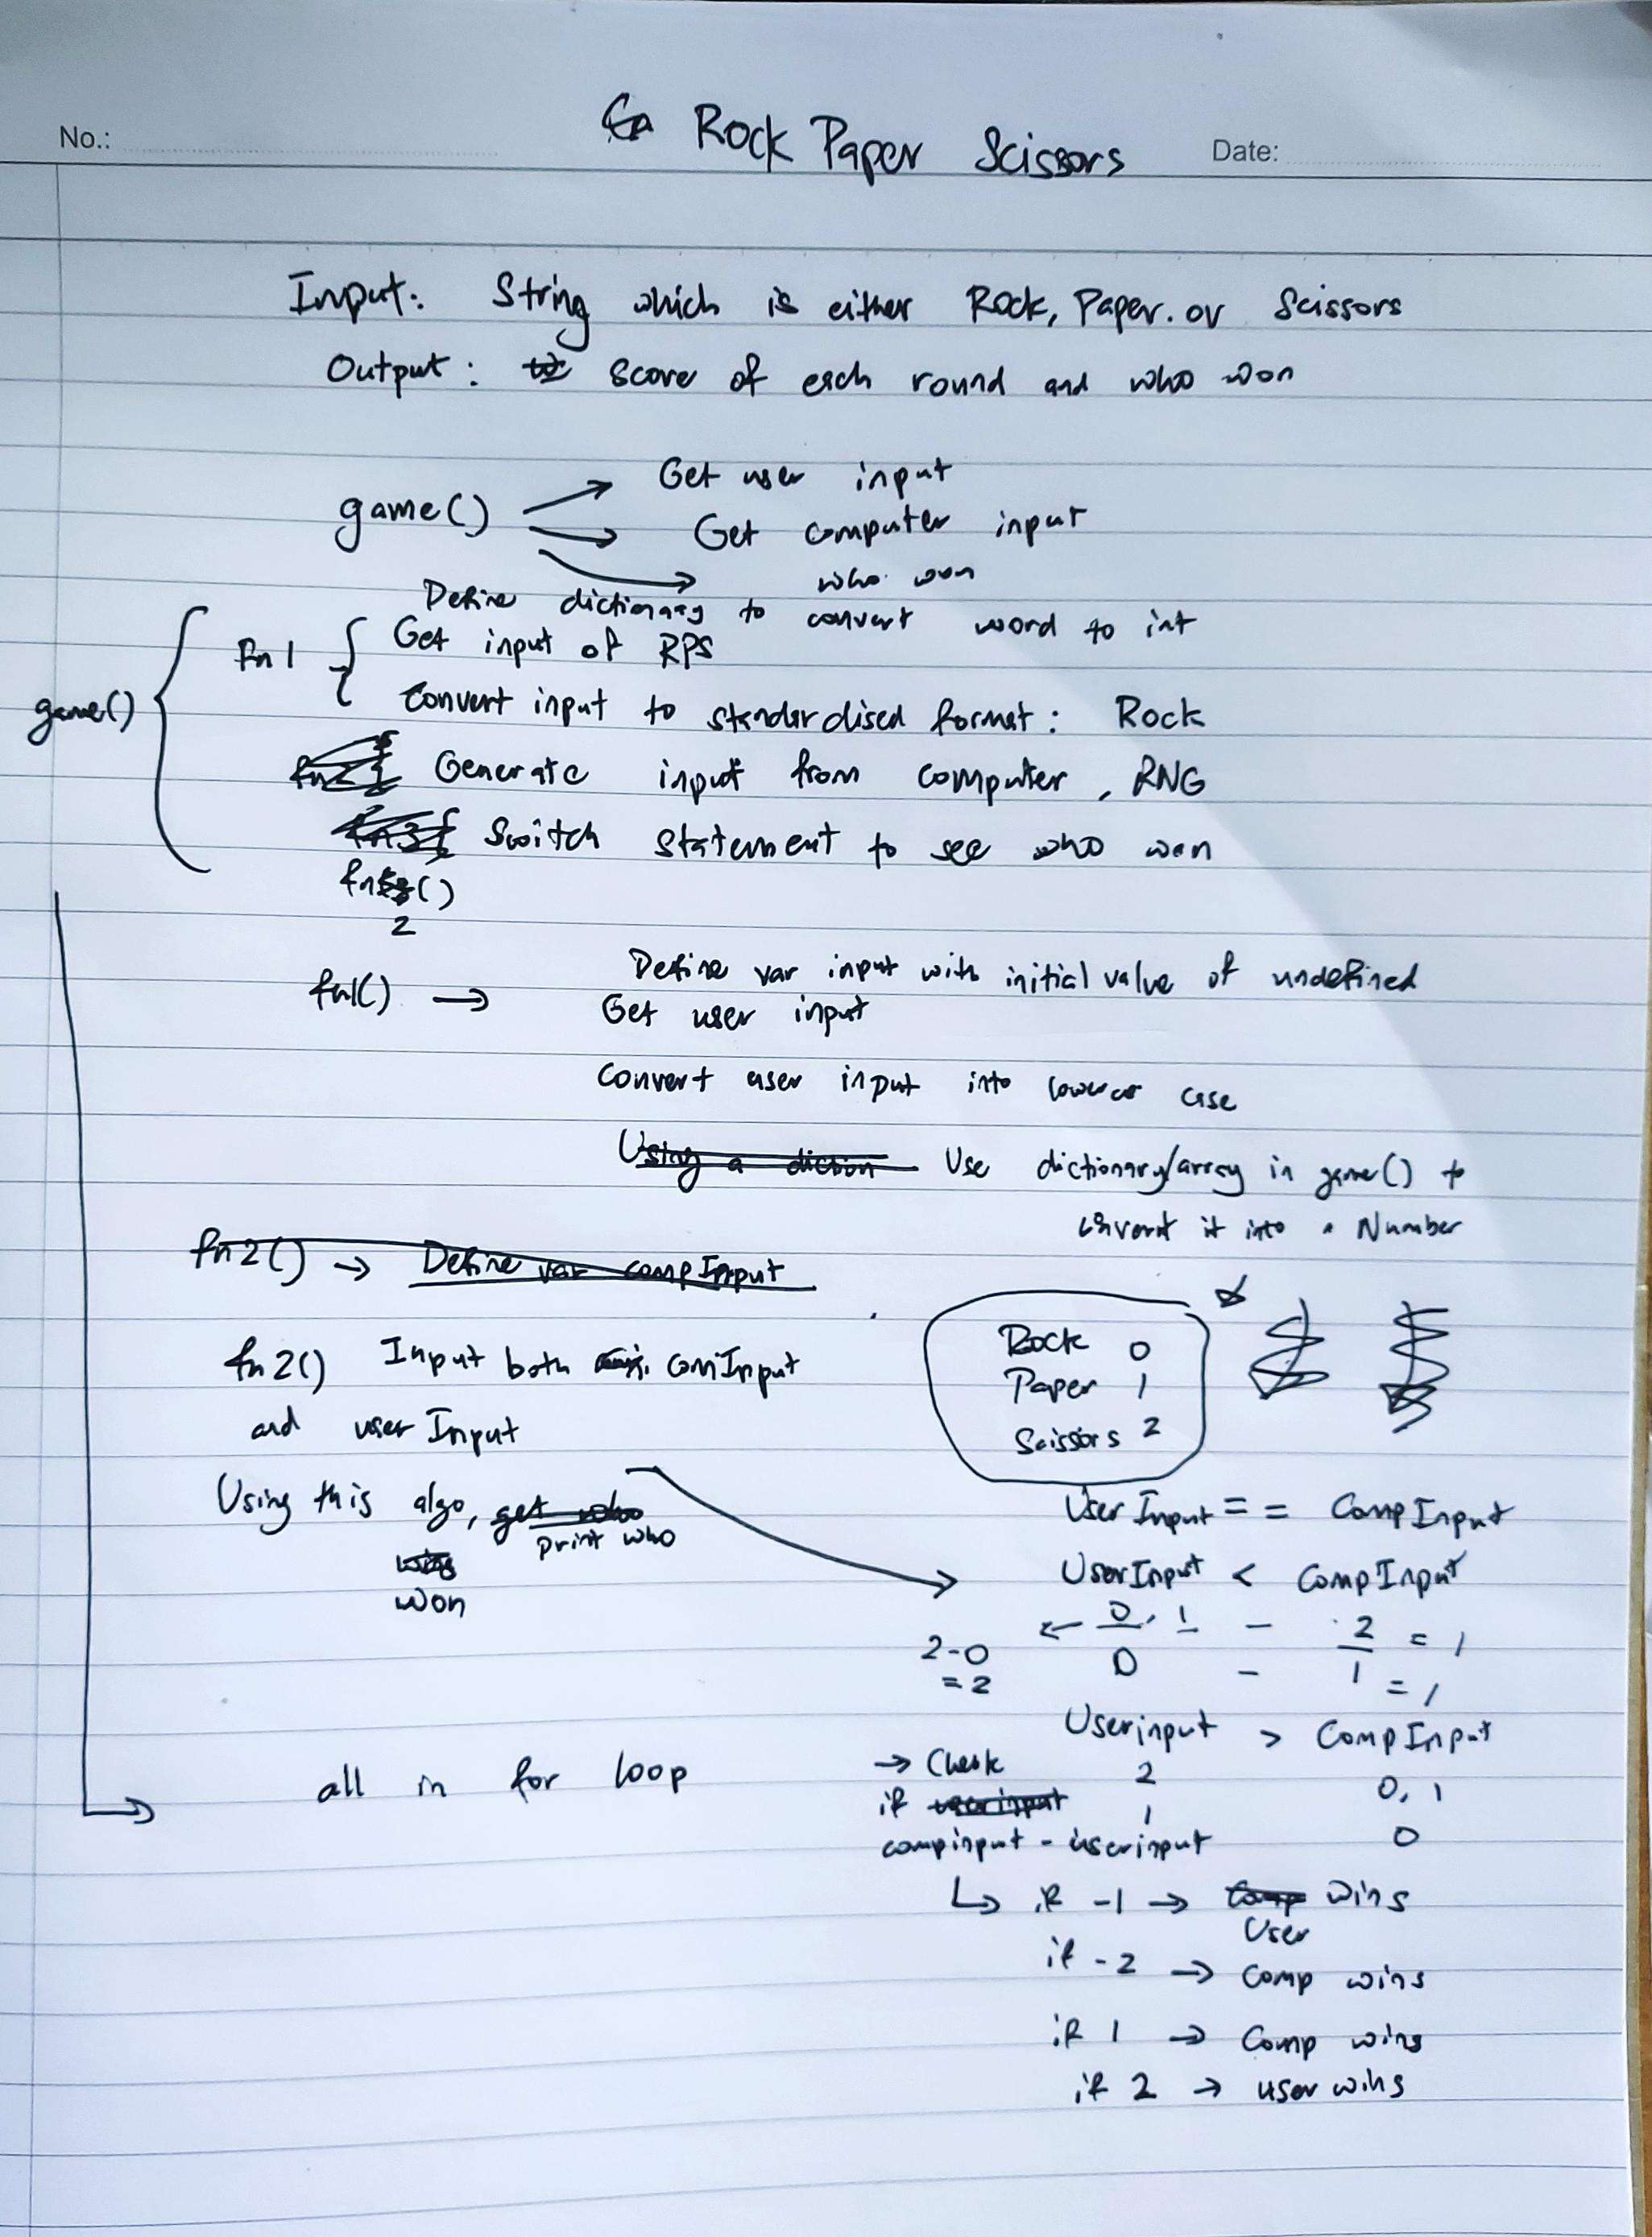 No.:
Rock Paper Scissors
Date:
Input: String which is either Rock, Paper. or Scissors
Output: score of each round and who won
game()
Get user input
Get computer input
who won
Define dictionary to convert word to int
game()
fn1
Get input of RPS
Convert input to standardised format: Rock
Generate input from computer, RNG
Switch statement to see who won
fn ()
2
fn1() →
Define var input with initial value of undefined
Get user input
Convert user input into lower case
Using a diction Use dictionary/array in game() to
convert it into a Number
fn2() → Define var compInput
fn2() Input both comInput
and userInput
Using this algo, get who
print who
wins
won
Rock 0
Paper 1
Scissors 2
UserInput == CompInput
UserInput < CompInput
← 0, 1 - 2 = 1
2-0
=2
0 - 1 = 1
Userinput > CompInput
→ Check 2 0, 1
if userinput 1 0
compinput - userinput
↳ if -1 → Comp wins
User
if -2 → Comp wins
if 1 → Comp wins
if 2 → user wins
all in for loop